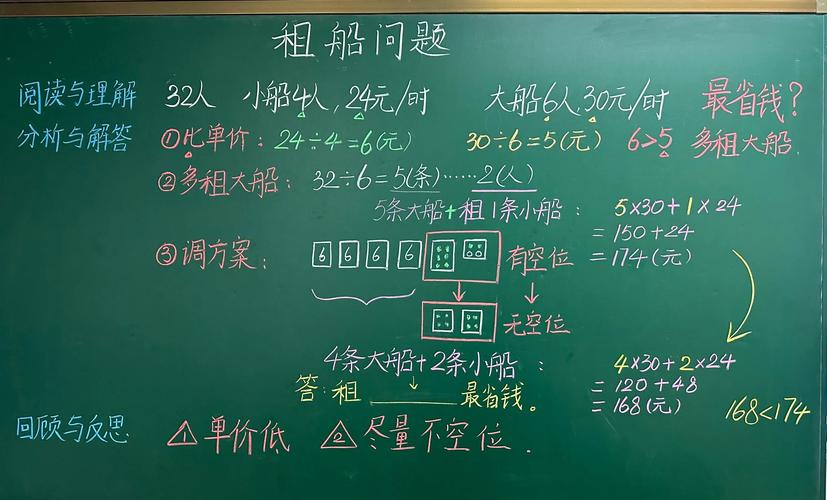 租船问题
阅读与理解 32人 小船4人，24元/时 大船6人，30元/时 最省钱？
分析与解答 ①比单价：24÷4=6(元) 30÷6=5(元) 6>5 多租大船.
②多租大船：32÷6=5(条)……2(人)
5条大船+租1条小船： 5×30+1×24
=150+24
③调方案： 6 6 6 6 有空位 =174(元)
无空位
4条大船+2条小船： 4×30+2×24
=120+48
答:租______最省钱。
=168(元) 168<174
回顾与反思 △1单价低 △2尽量不空位.